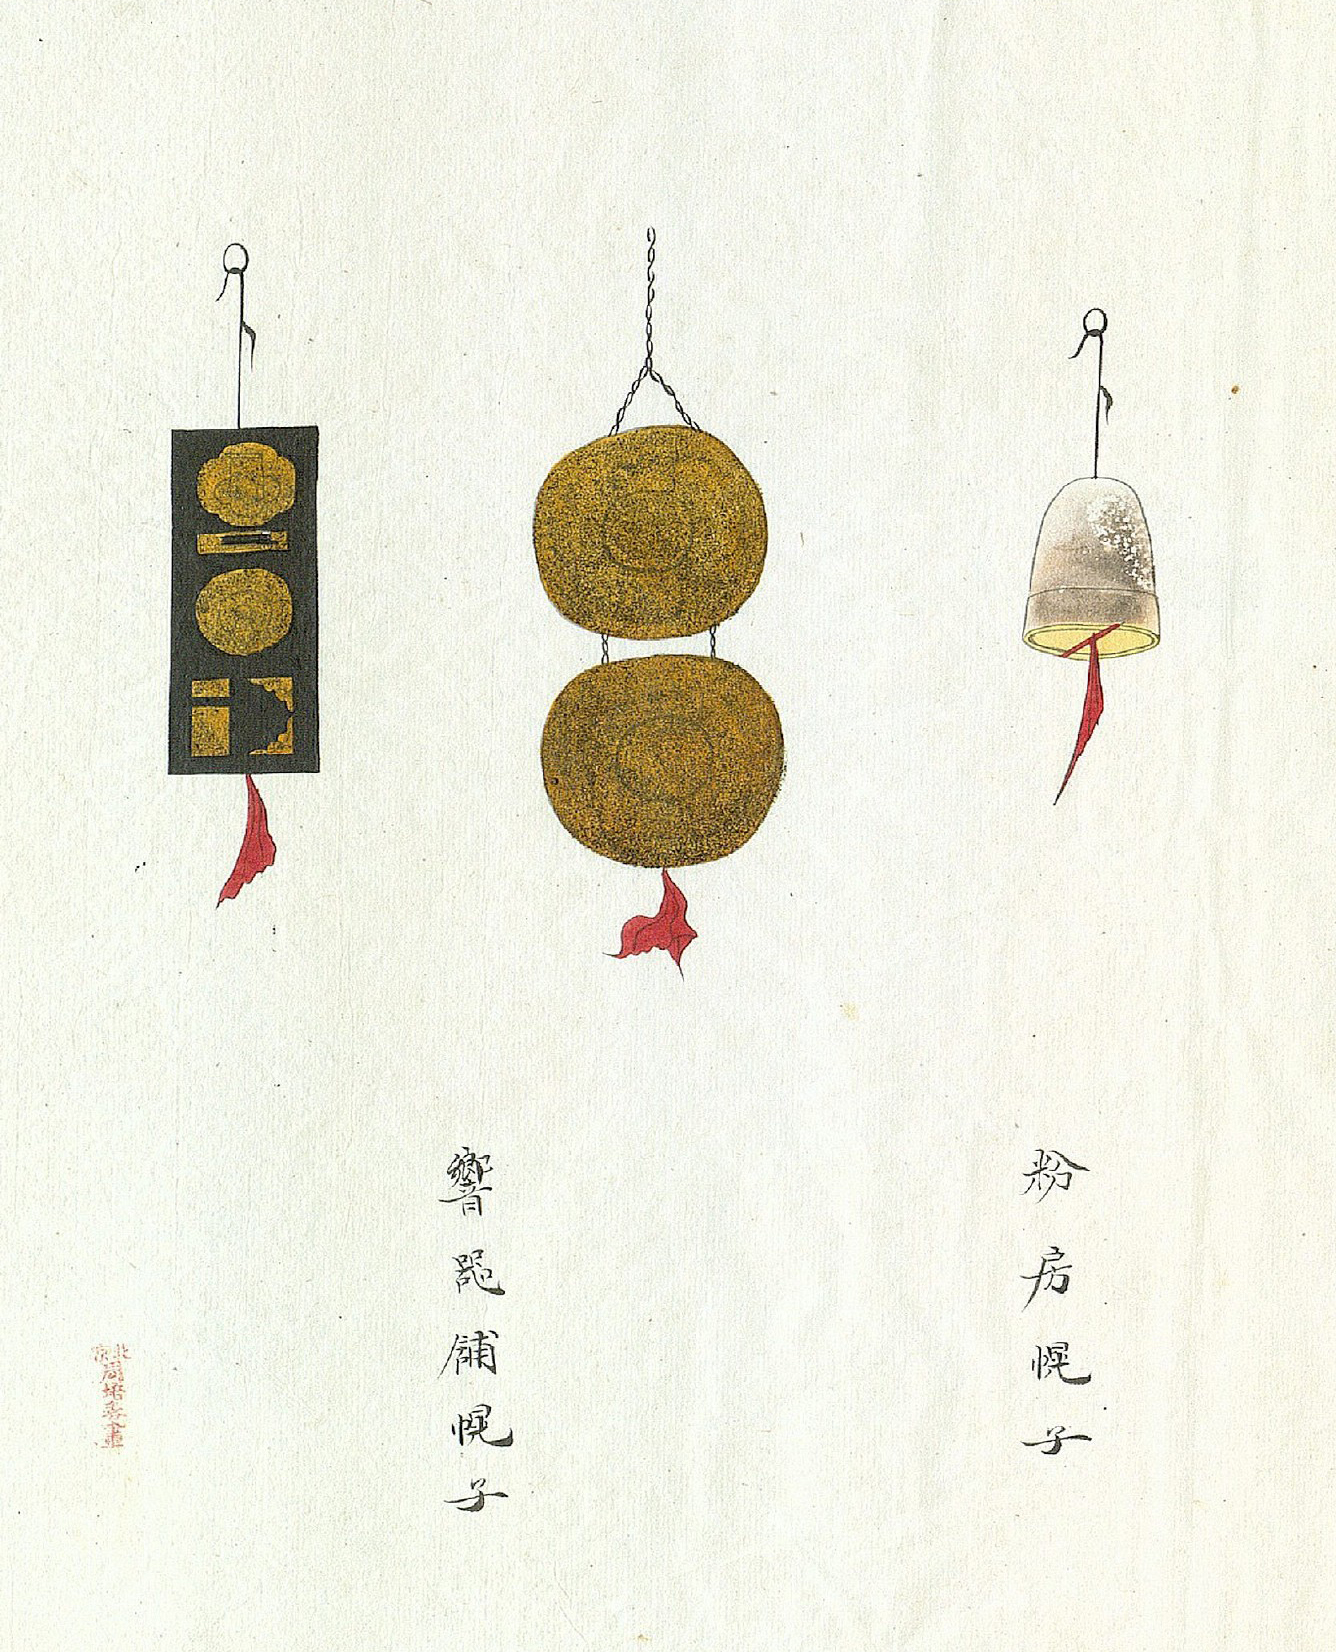 粉房幌子
響器舖幌子
北京
周培春畫